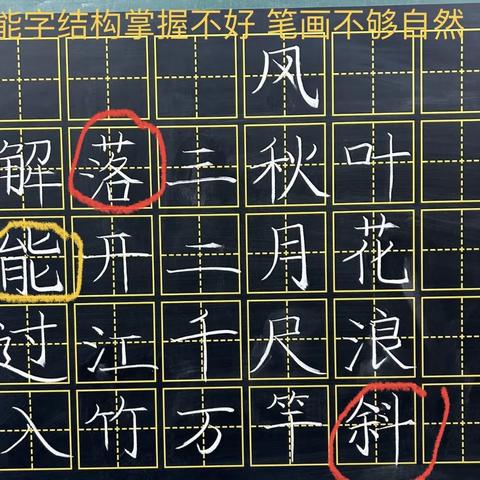 能字结构掌握不好 笔画不够自然
风
解落三秋叶
能开二月花
过江千尺浪
入竹万竿斜